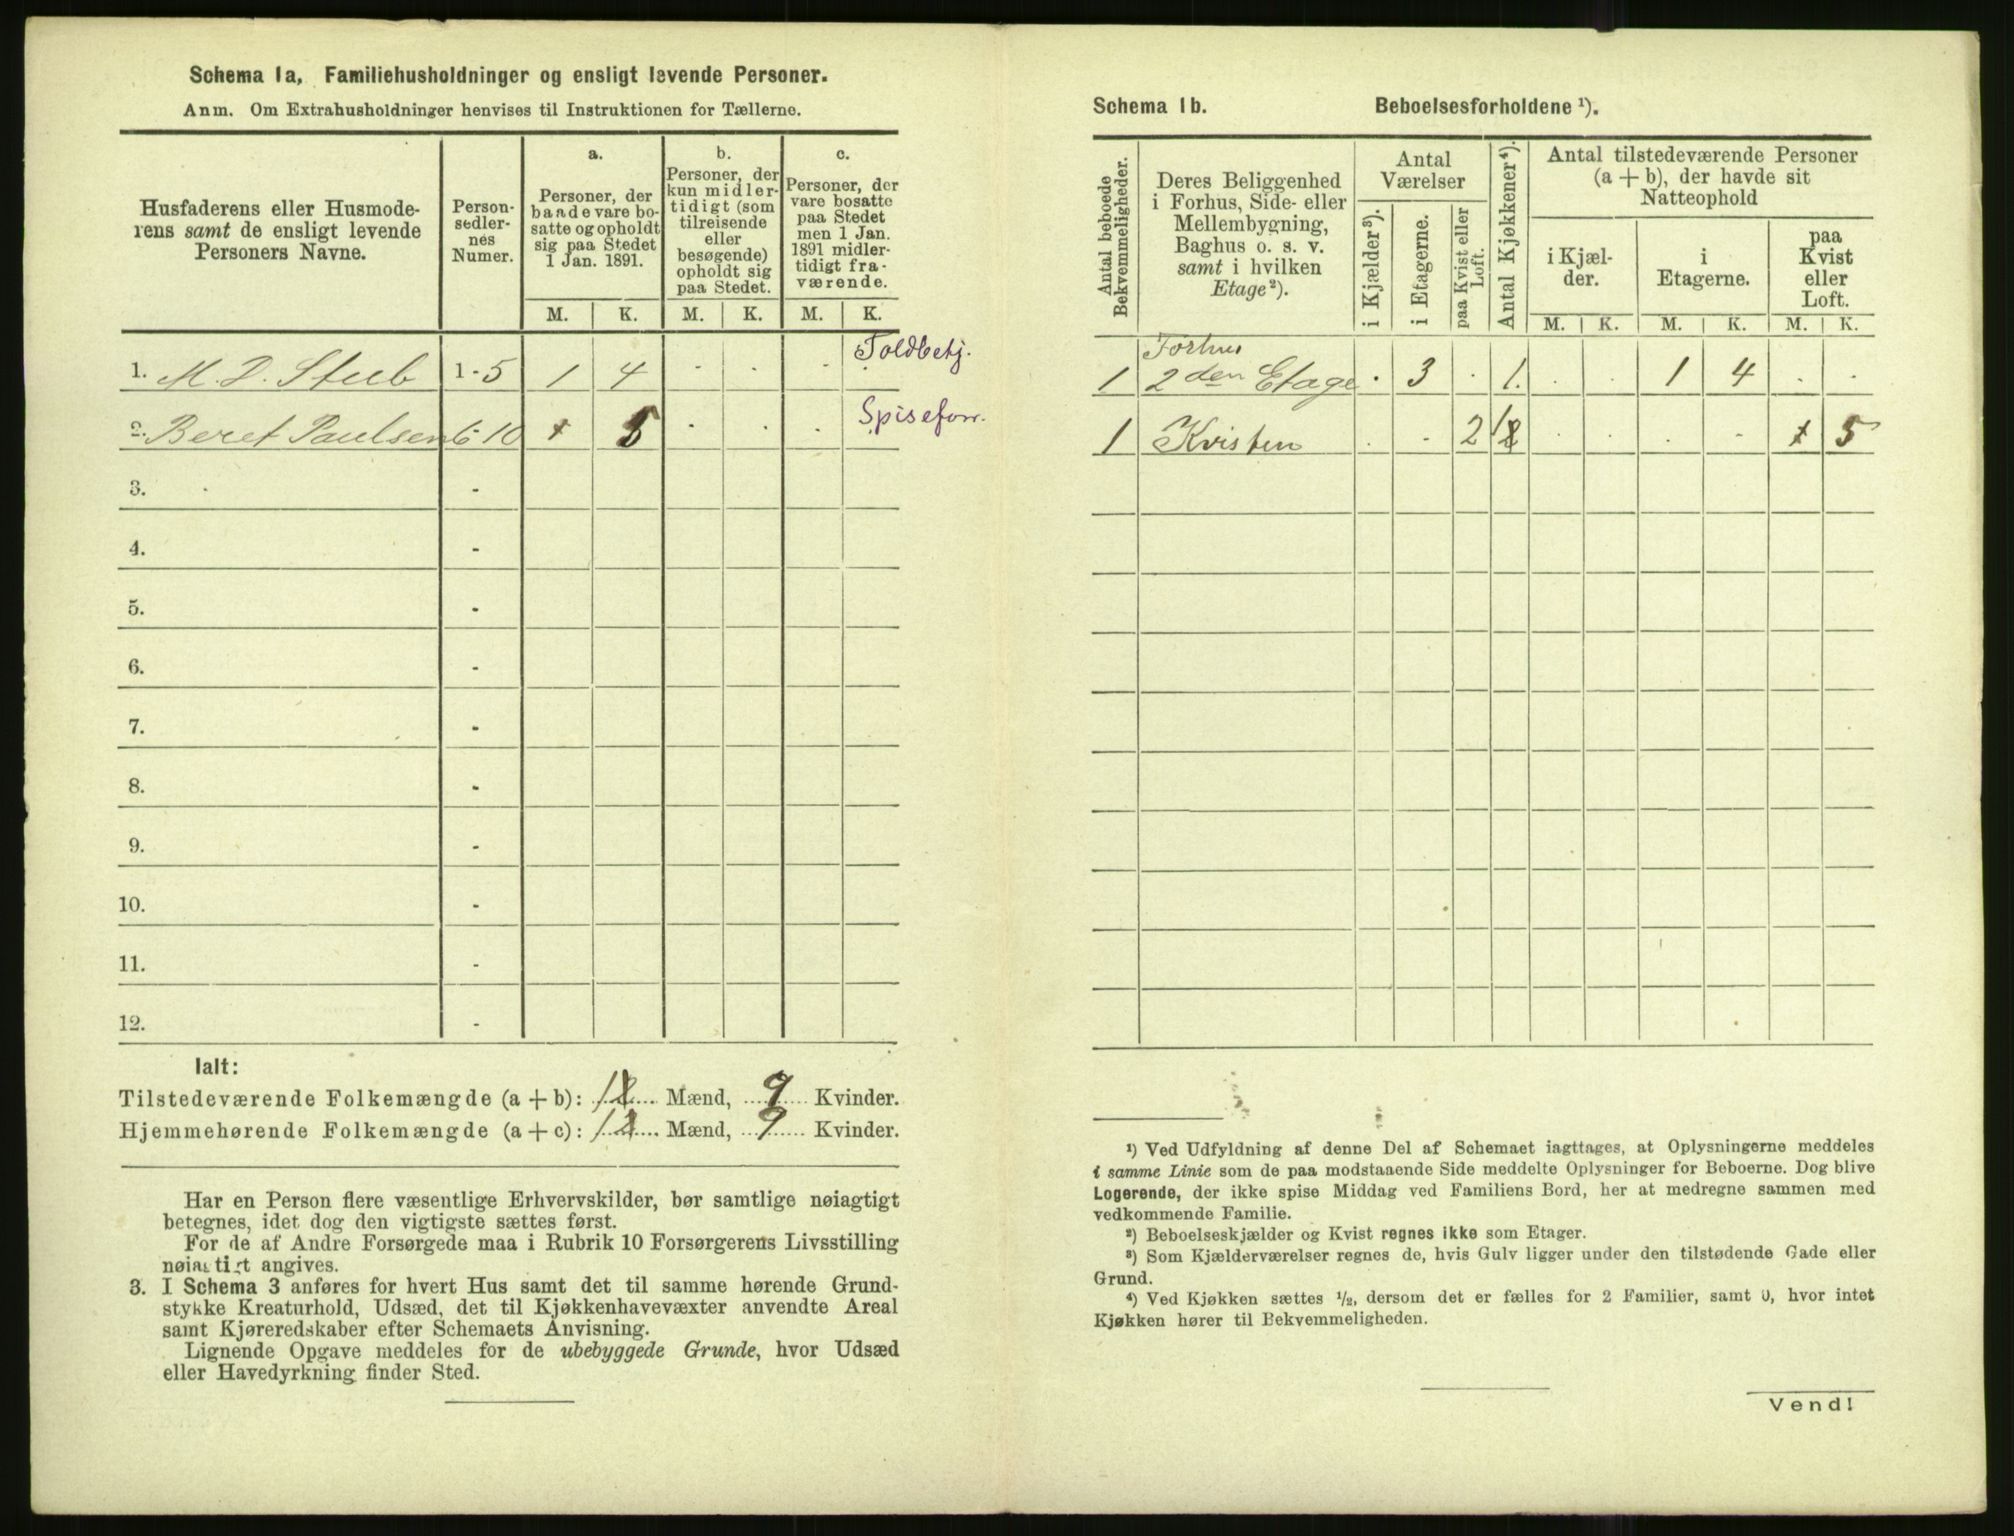 Schema 1a, Familiehusholdninger og ensligt levende Personer.
Anm. Om Extrahusholdninger henvises til Instruktionen for Tællerne.
Husfaderens eller Husmode-
rens samt de ensligt levende
Personers Navne.
Person-
sedler-
nes
Numer.
a.
Personer, der
baade vare bo-
satte og opholdt
sig paa Stedet
1 Jan. 1891.
b.
Personer, der
kun midler-
tidigt (som
tilreisende
eller
besøgende)
opholdt sig
paa Stedet.
c.
Personer, der
vare bosatte
paa Stedet
men 1 Jan.
1891 midler-
tidigt fra-
værende.
M. K. M. K. M. K.
1. M. D. Steeb 1-5 1 4 · · · · Toldbetj.
2. Beret Paulsen 6-10 5 · · · · Spiseforr.
3. -
4. -
5. -
6. -
7. -
8. -
9. -
10. -
11. -
12. -
Ialt:
Tilstedeværende Folkemængde (a + b): 1 Mænd, 9 Kvinder.
Hjemmehørende Folkemængde (a + c): 1 Mænd, 9 Kvinder.
Har en Person flere væsentlige Erhvervskilder, bør samtlige nøiagtigt
betegnes, idet dog den vigtigste sættes først.
For de af Andre Forsørgede maa i Rubrik 10 Forsørgerens Livsstilling
nøiagtigt angives.
3. I Schema 3 anføres for hvert Hus samt det til samme hørende Grund-
stykke Kreaturhold, Udsæd, det til Kjøkkenhavevæxter anvendte Areal
samt Kjøreredskaber efter Schemaets Anvisning.
Lignende Opgave meddeles for de ubebyggede Grunde, hvor Udsæd
eller Havedyrkning finder Sted.
Schema 1b. Beboelsesforholdene ¹).
Antal beboede
Bekvemmeligheder.
Deres Beliggenhed
i Forhus, Side- eller
Mellembygning,
Baghus o. s. v.
samt i hvilken
Etage²).
Antal
Værelser
i Kjælder³).
i Etagerne.
paa Kvist eller
Loft.
Antal Kjøkkener⁴).
Antal tilstedeværende Personer
(a + b), der havde sit
Natteophold
i Kjæl-
der.
i
Etagerne.
paa
Kvist
eller
Loft.
M. K. M. K. M. K.
Forhus
1 2den Etage · 3 · 1. · · 1 4 · ·
1 Kvisten · · 2 1 · · · · 5
¹) Ved Udfyldning af denne Del af Schemaet iagttages, at Oplysningerne meddeles
i samme Linie som de paa modstaaende Side meddelte Oplysninger for Beboerne. Dog blive
Logerende, der ikke spise Middag ved Familiens Bord, her at medregne sammen med
vedkommende Familie.
²) Beboelseskjælder og Kvist regnes ikke som Etager.
³) Som Kjælderværelser regnes de, hvis Gulv ligger under den tilstødende Gade eller
Grund.
⁴) Ved Kjøkken sættes ½, dersom det er fælles for 2 Familier, samt 0, hvor intet
Kjøkken hører til Bekvemmeligheden.
Vend!